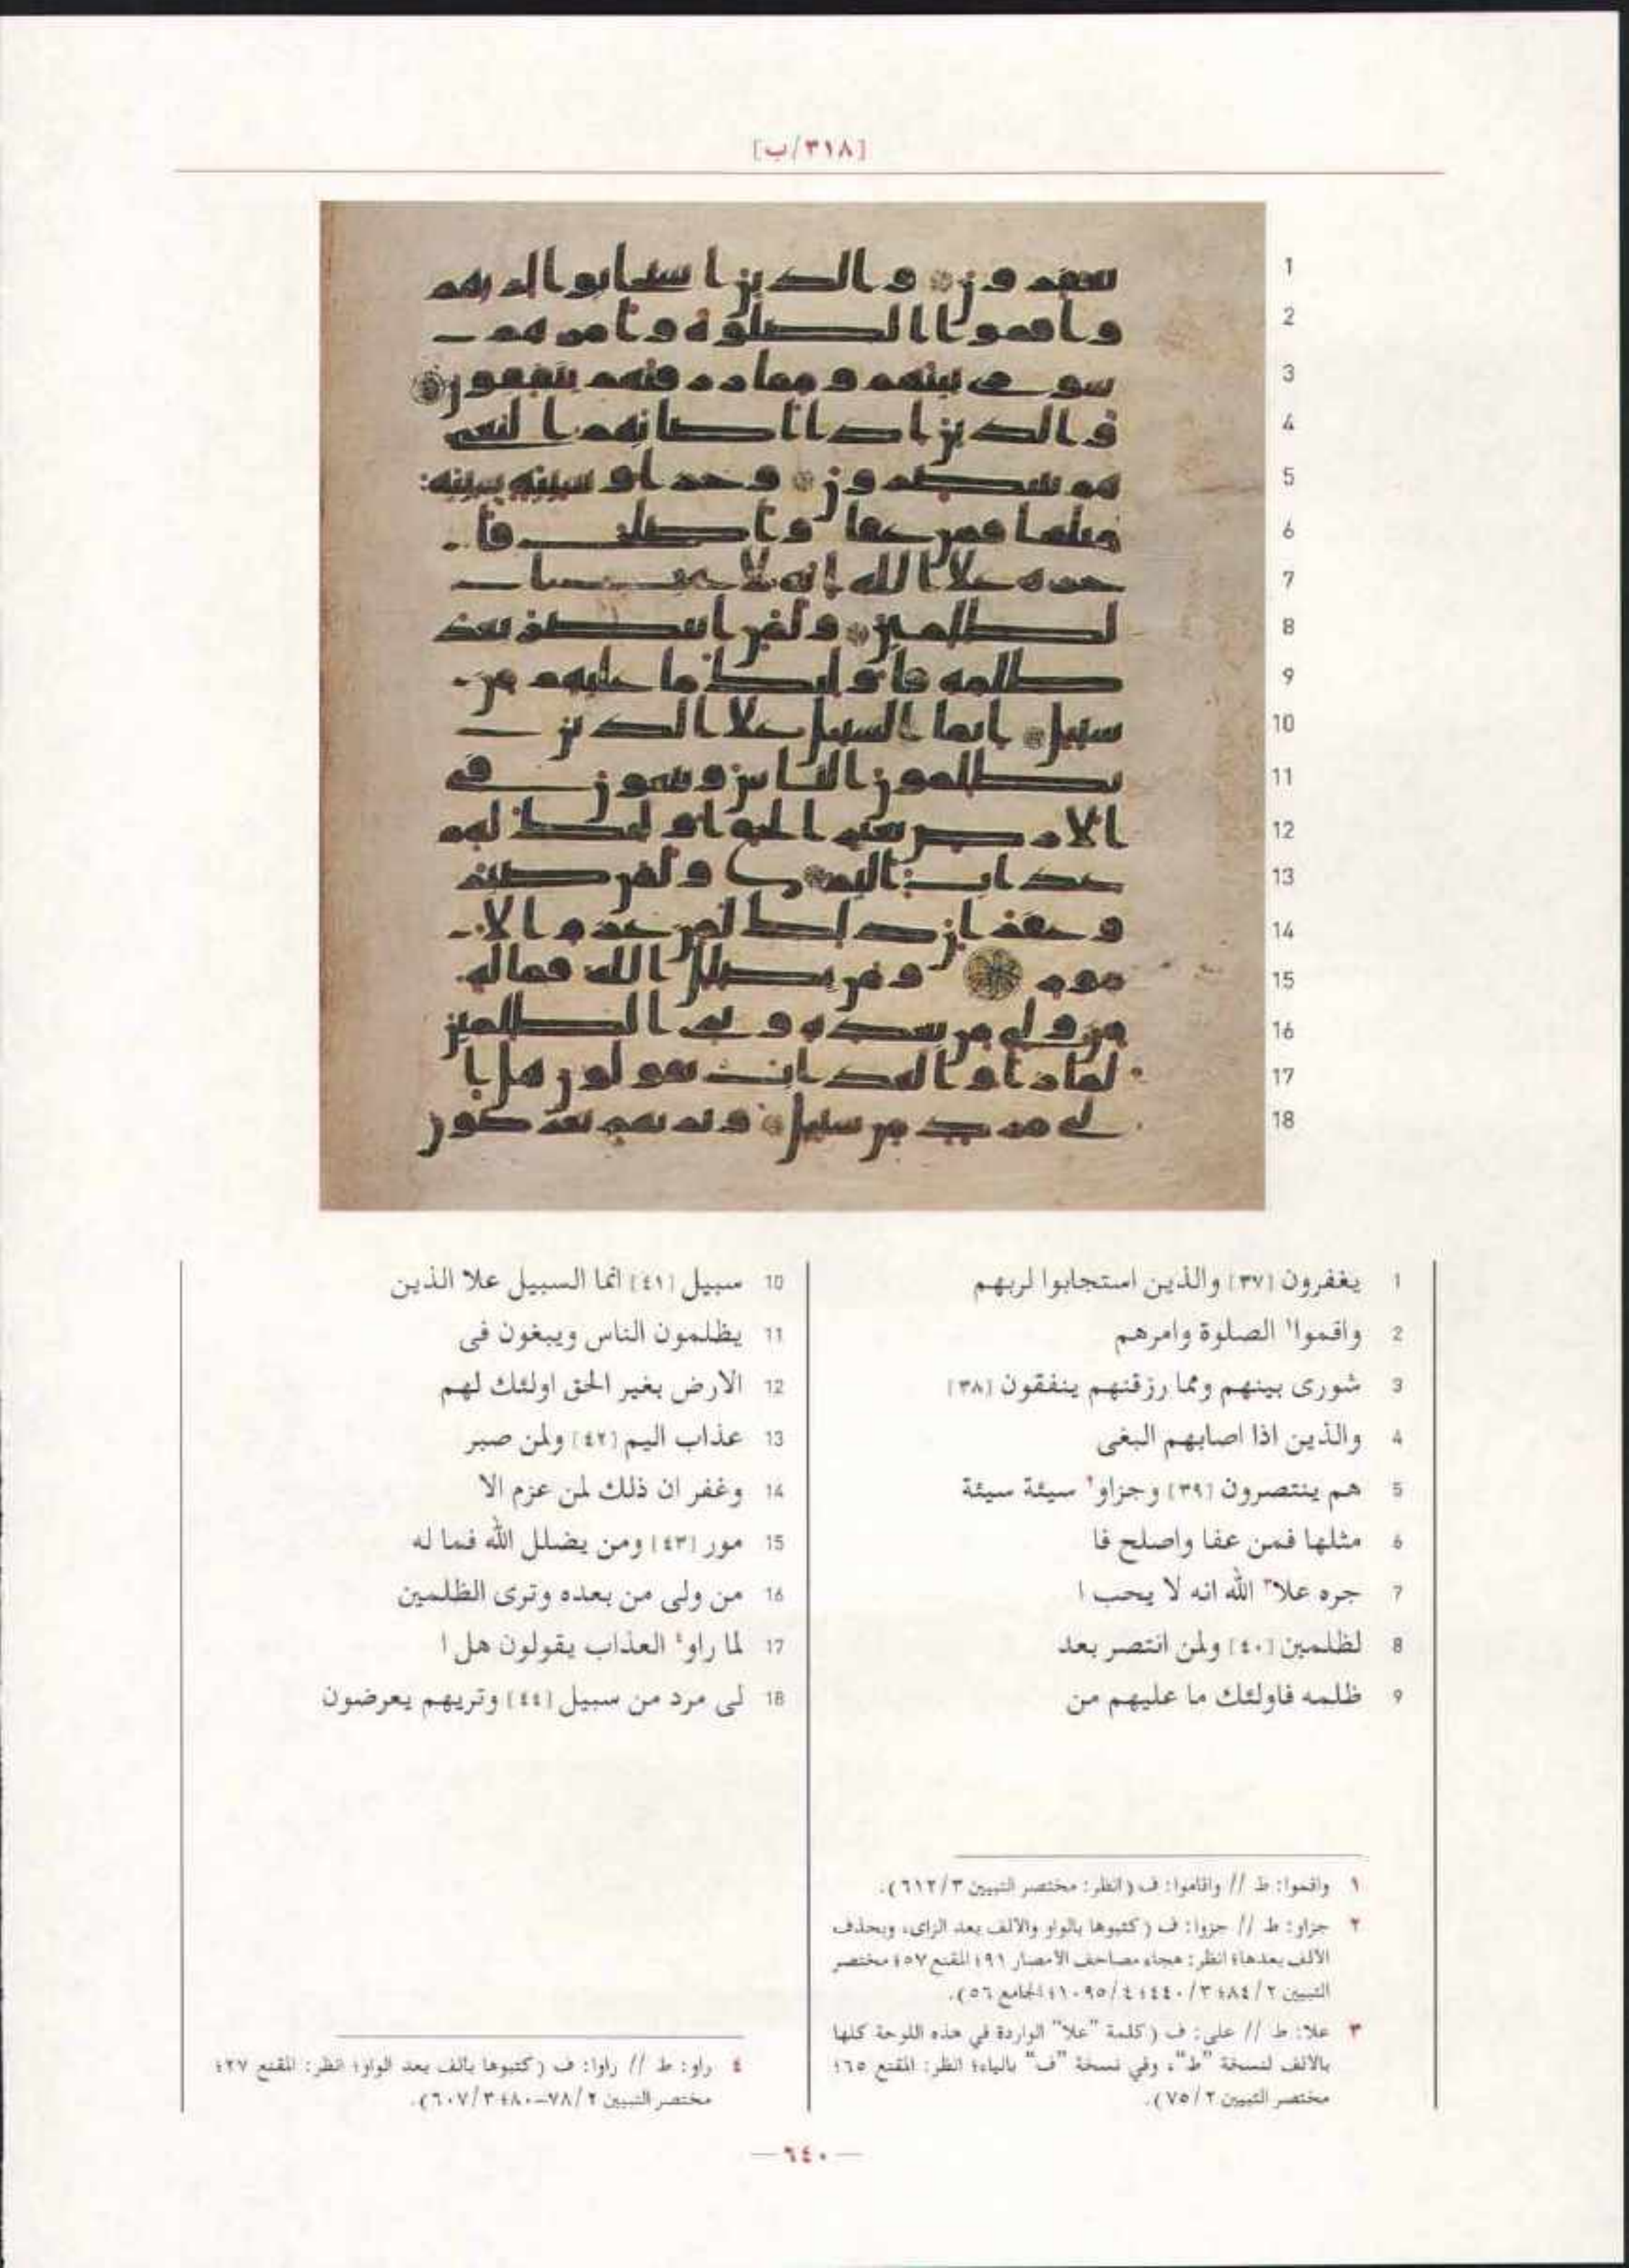 [٣١٨/ب]
1 يغفرون [٣٧] والذين استجابوا لربهم
2 واقموا١ الصلوة وامرهم
3 شورى بينهم ومما رزقنهم ينفقون [٣٨]
4 والذين اذا اصابهم البغى
5 هم ينتصرون [٣٩] وجزاو٢ سيئة سيئة
6 مثلها فمن عفا واصلح فا
7 جره علا٣ الله انه لا يحب ا
8 لظلمين [٤٠] ولمن انتصر بعد
9 ظلمه فاولئك ما عليهم من
10 سبيل [٤١] انما السبيل علا الذين
11 يظلمون الناس ويبغون فى
12 الارض بغير الحق اولئك لهم
13 عذاب اليم [٤٢] ولمن صبر
14 وغفر ان ذلك لمن عزم الا
15 مور [٤٣] ومن يضلل الله فما له
16 من ولى من بعده وترى الظلمين
17 لما راو٤ العذاب يقولون هل ا
18 لى مرد من سبيل [٤٤] وتريهم يعرضون
١ واقموا: ط // واقاموا: ف (انظر: مختصر التبيين ٦١٢/٣).
٢ جزاو: ط // جزوا: ف (كتبوها بالواو والالف بعد الزاى، وبحذف
الالف بعدها؛ انظر: هجاء مصاحف الامصار ٩١؛ المقنع ٥٧؛ مختصر
التبيين ٨٤/٢؛ ٤٤٠/٣؛ ١٠٩٥/٤؛ الجامع ٥٦).
٣ علا: ط // على: ف (كلمة "علا" الواردة في هذه اللوحة كلها
بالالف لنسخة "ط"، وفي نسخة "ف" بالياء؛ انظر: المقنع ٦٥؛
مختصر التبيين ٧٥/٢).
٤ راو: ط // راوا: ف (كتبوها بالف بعد الواو؛ انظر: المقنع ٢٧؛
مختصر التبيين ٧٨/٢–٨٠؛ ٦٠٧/٣).
— ٦٤٠ —